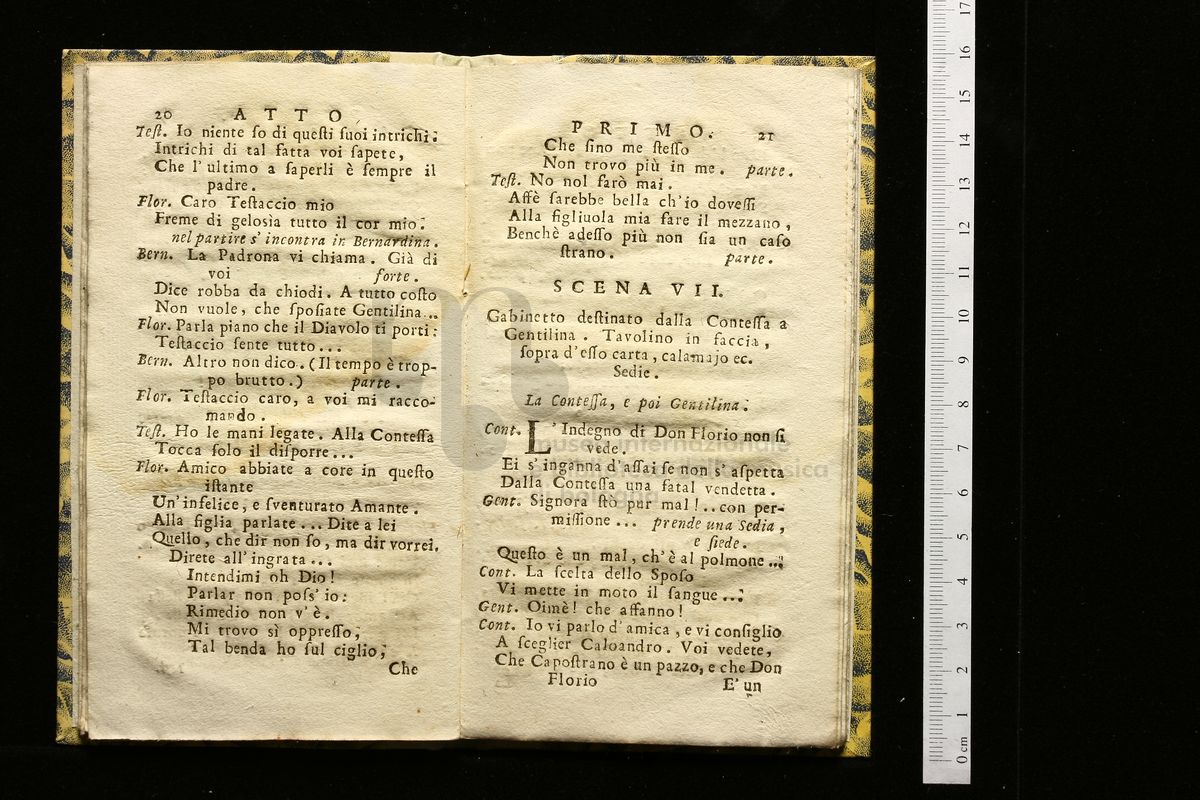 20 ATTO
Teſt. Io niente ſo di queſti ſuoi intrichi:
Intrichi di tal fatta voi ſapete,
Che l'ultimo a ſaperli è ſempre il
padre.
Flor. Caro Teſtaccio mio
Freme di geloſia tutto il cor mio:
nel partire s'incontra in Bernardina.
Bern. La Padrona vi chiama. Già di
voi forte.
Dice robba da chiodi. A tutto coſto
Non vuole, che ſpoſiate Gentilina...
Flor. Parla piano che il Diavolo ti porti:
Teſtaccio ſente tutto...
Bern. Altro non dico. (Il tempo è trop-
po brutto.) parte.
Flor. Teſtaccio caro, a voi mi racco-
mando.
Teſt. Ho le mani legate. Alla Conteſſa
Tocca ſolo il diſporre...
Flor. Amico abbiate a core in queſto
iſtante
Un'infelice, e ſventurato Amante.
Alla figlia parlate... Dite a lei
Quello, che dir non ſo, ma dir vorrei.
Direte all'ingrata...
Intendimi oh Dio!
Parlar non poſs'io:
Rimedio non v'è.
Mi trovo sì oppreſſo;
Tal benda ho ſul ciglio;
Che
PRIMO. 21
Che ſino me ſteſſo
Non trovo più in me. parte.
Teſt. No nol farò mai.
Affè ſarebbe bella ch'io doveſſi
Alla figliuola mia fare il mezzano,
Benchè adeſſo più non ſia un caſo
ſtrano. parte.
SCENA VII.
Gabinetto deſtinato dalla Conteſſa a
Gentilina. Tavolino in faccia,
ſopra d'eſſo carta, calamajo ec.
Sedie.
La Conteſſa, e poi Gentilina.
Cont. L'Indegno di Don Florio non ſi
vede.
Ei s'inganna d'aſſai ſe non s'aſpetta
Dalla Conteſſa una fatal vendetta.
Gent. Signora ſtò pur mal!.. con per-
miſſione... prende una Sedia,
e ſiede.
Queſto è un mal, ch'è al polmone...
Cont. La ſcelta dello Spoſo
Vi mette in moto il ſangue...
Gent. Oimè! che affanno!
Cont. Io vi parlo d'amica, e vi conſiglio
A ſceglier Caloandro. Voi vedete,
Che Capoſtrano è un pazzo, e che Don
Florio E' un
museo internazionale
e biblioteca della musica
bologna
0 cm 1 2 3 4 5 6 7 8 9 10 11 12 13 14 15 16 17